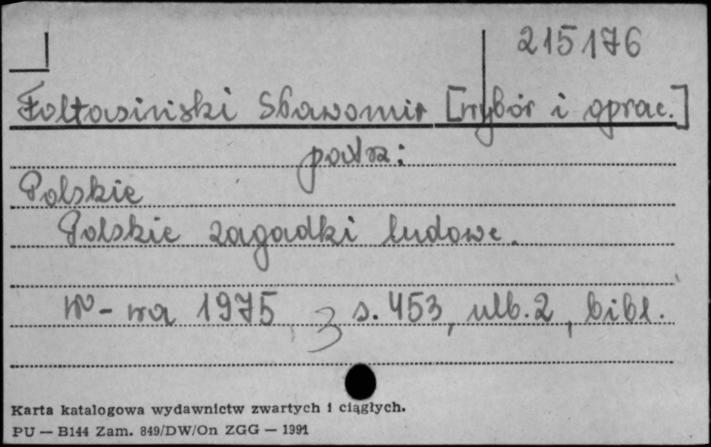 215176
Fołtasiński Sławomir [wybór i oprac.]
patrz:
Polskie
Polskie zagadki ludowe.
W-wa 1975 3 s. 453, ulb. 2, bibl.
Karta katalogowa wydawnictw zwartych i ciągłych.
PU — B144 Zam. 849/DW/On ZGG — 1991